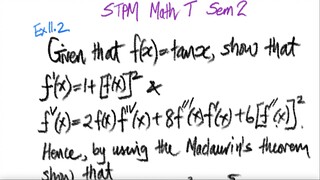 STPM Math T Sem 2
Ex11.2
Given that f(x)=tanx, show that
f'(x)=1+[f(x)]² &
fⱽ(x)=2f(x)fⁱⱽ(x)+8f'''(x)f'(x)+6[f''(x)]².
Hence, by using the Maclaurin's theorem
show that